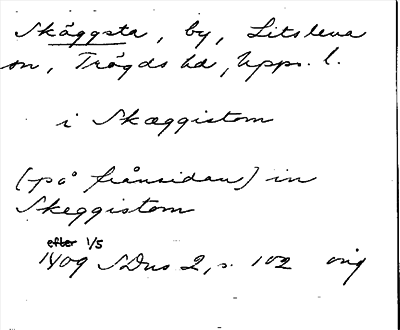 Skäggsta, by, Litslena
sn, Trögds hd, Upps. l.
i Skæggistom
(på frånsidan) in
Skeggistom
efter 1/5
1409 SDns 2, s. 102 orig